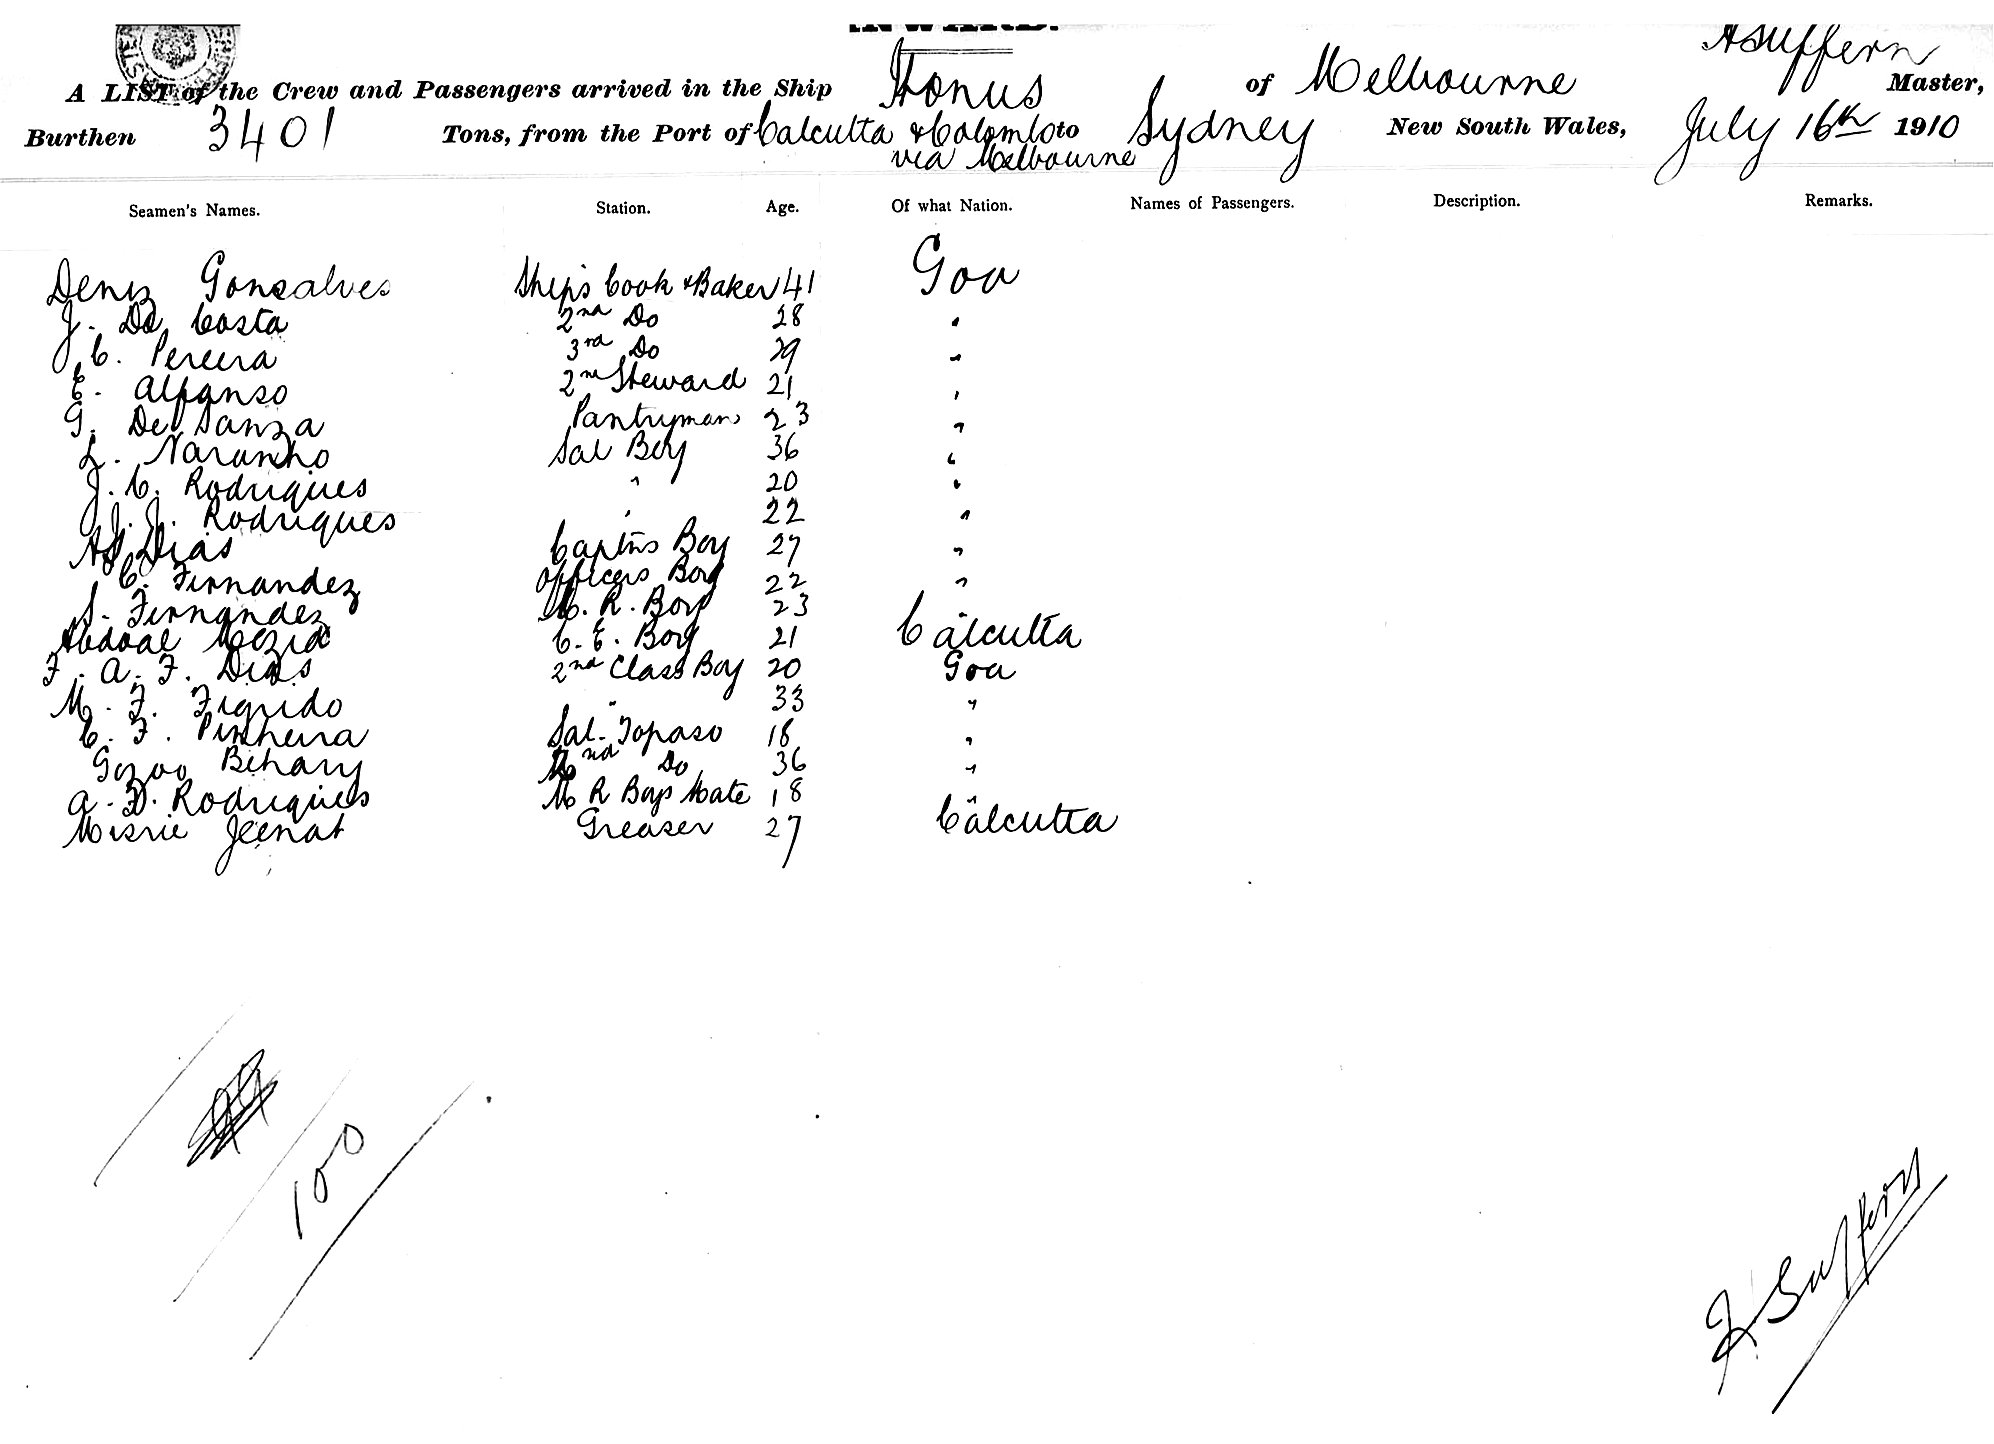 INWARD.
A LIST of the Crew and Passengers arrived in the Ship Honus of Melbourne A Suffern Master,
Burthen 3401 Tons, from the Port of Calcutta & Colombo to Sydney New South Wales, July 16th 1910
via Melbourne
Seamen's Names. Station. Age. Of what Nation. Names of Passengers. Description. Remarks.
Deniz Gonsalves Ships Cook & Baker 41 Goa
J. Da Costa 2nd Do 28 "
C. Pereira 3rd Do 29 "
E. Alfanso 2nd Steward 21 "
G. De Sanza Pantryman 23 "
L. Naronho Sal Boy 36 "
J. C. Rodrigues " 20 "
J. J. Rodrigues " 22 "
Dias Captns Boy 27 "
C. Fernandez Officers Boy 22 "
S. Fernandez M. R. Boy 23 "
Abdoal Mozid C. E. Boy 21 Calcutta
F. A. F. Dias 2nd Class Boy 20 Goa
M. F. Figrido " 33 "
C. F. Pinheira Sal. Topaso 18 "
Gozoo Behary 2nd Do 36 "
A. D. Rodrigues M R Boys Mate 18 "
Misrie Jeenat Greaser 27 Calcutta
100
Suffern